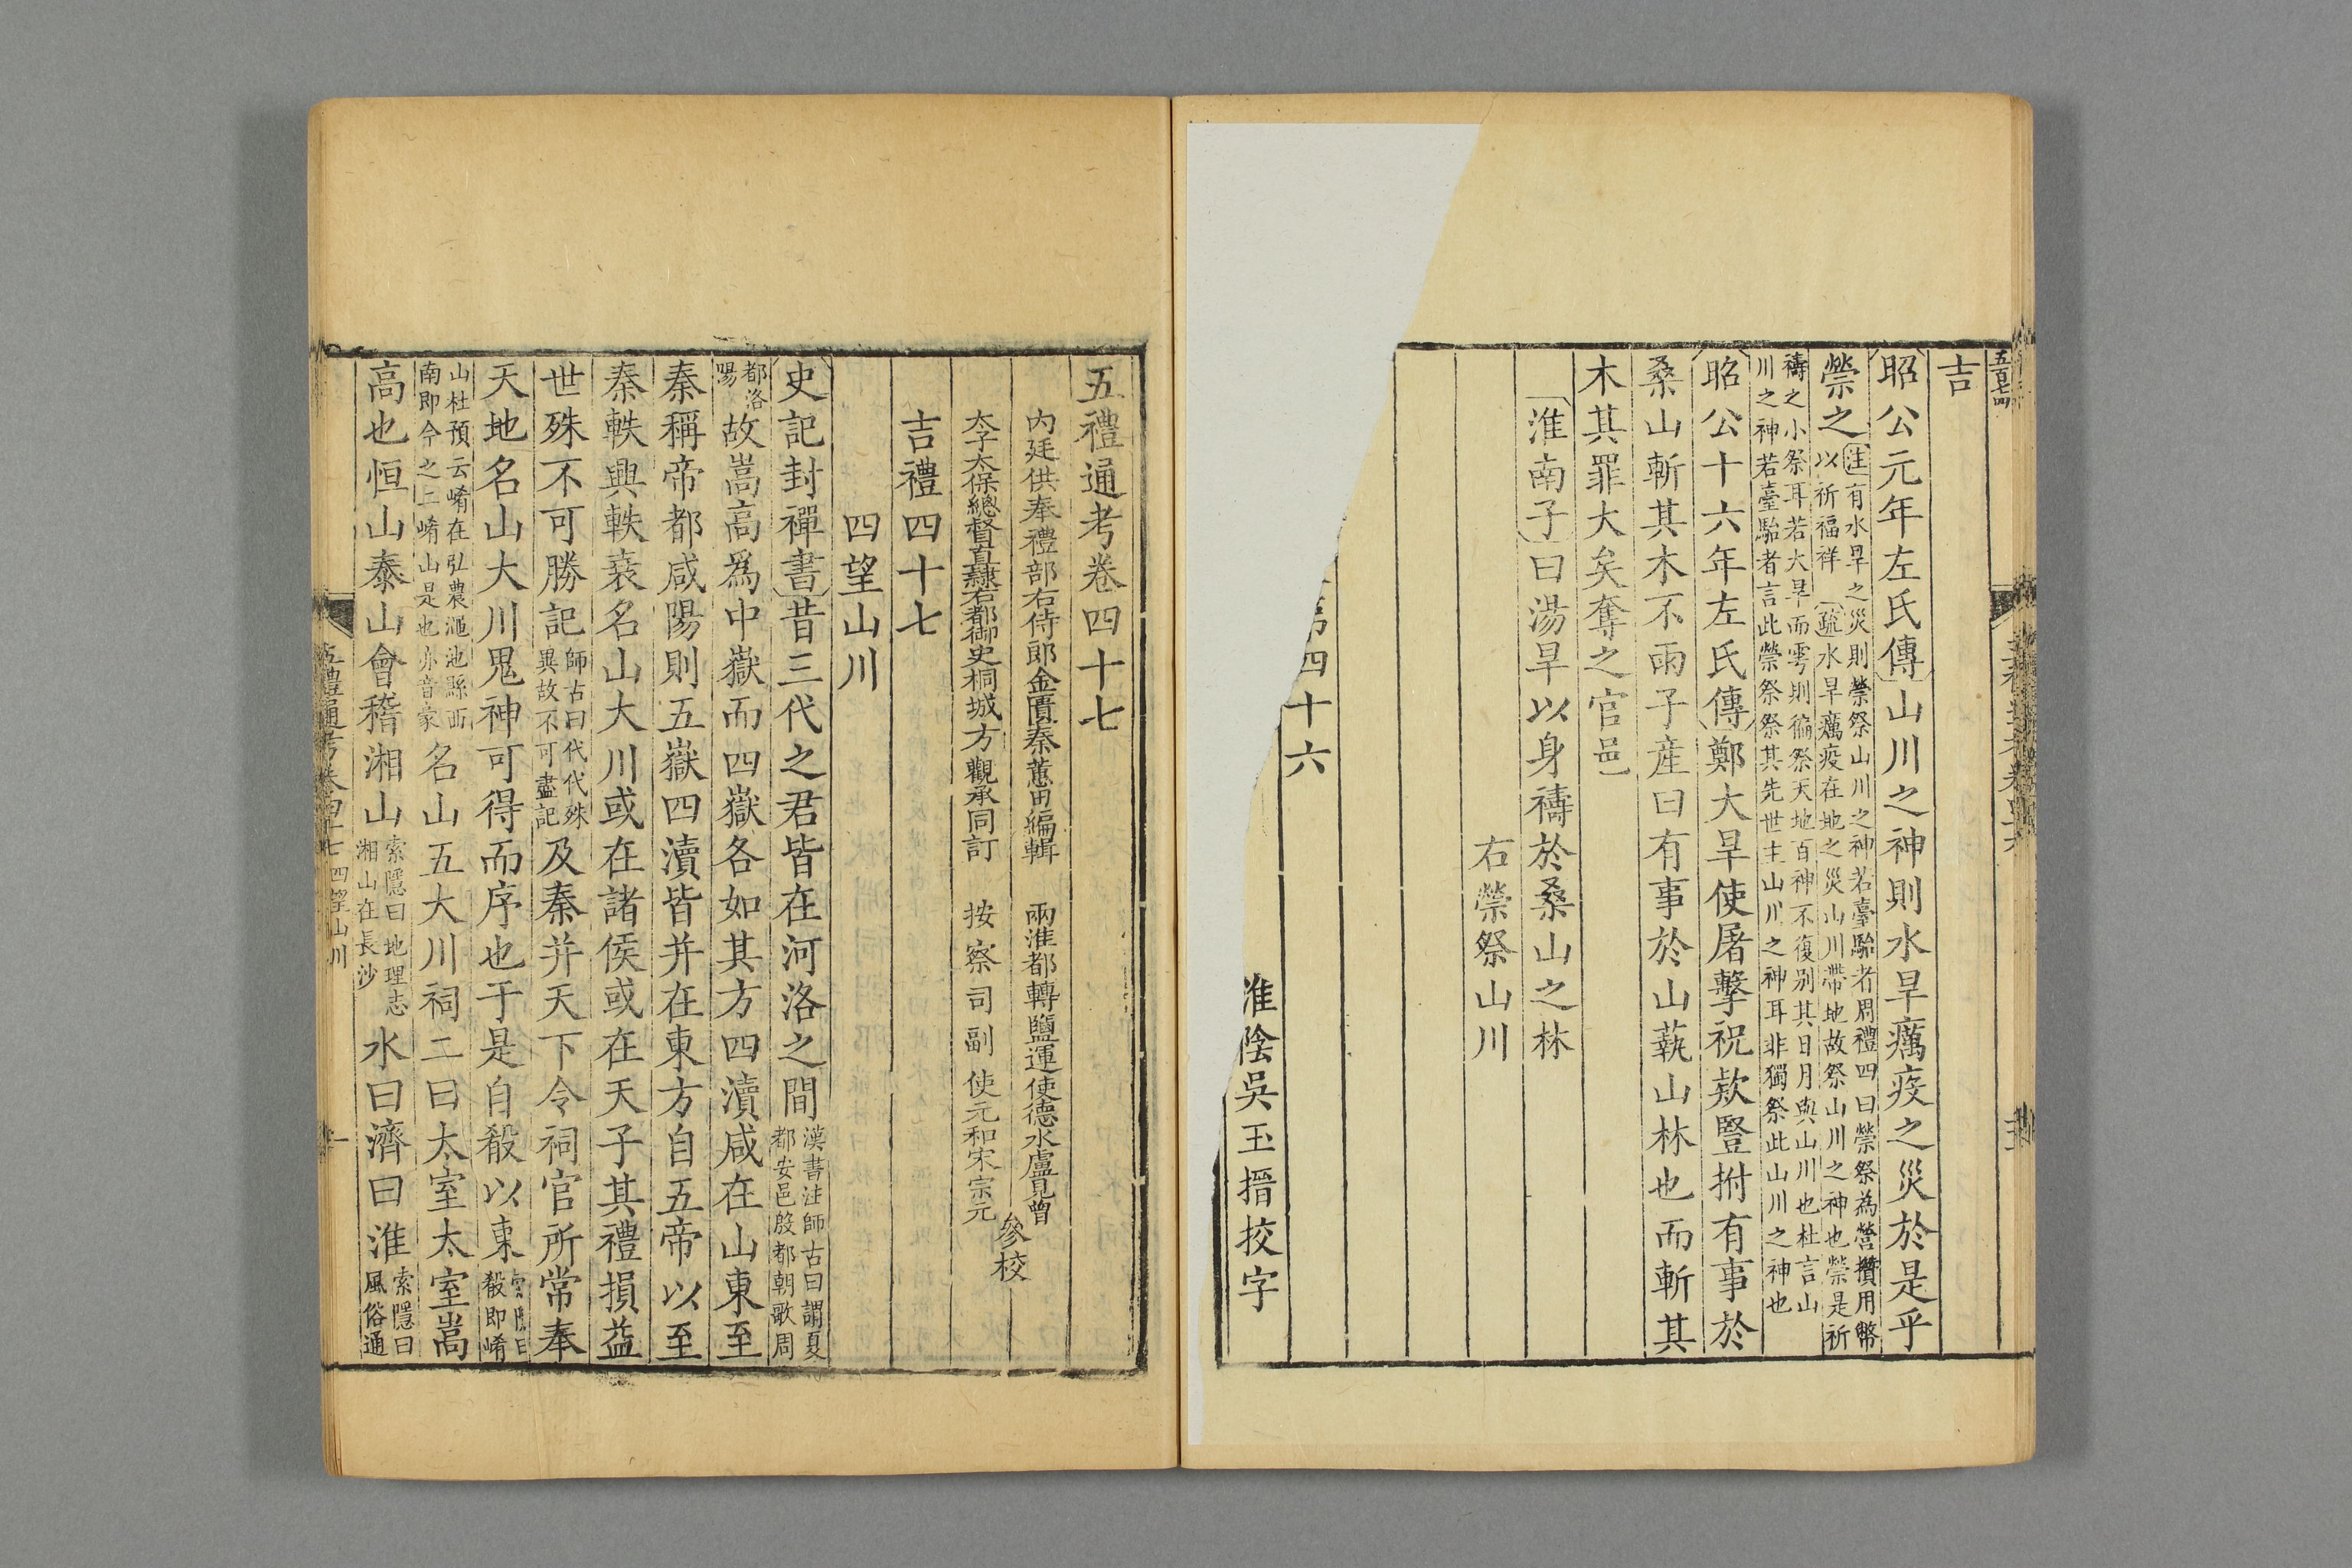 吉
昭公元年左氏傳山川之神則水旱癘疫之災於是乎
禜之注有水旱之災則禜祭山川之神若臺駘者周禮四曰禜祭為營攢用幣以祈福祥疏水旱癘疫在地之災山川帶地故祭山川之神也禜是祈
禱之小祭耳若大旱而雩則徧祭天地百神不復别其日月與山川也杜言山川之神若臺駘者言此禜祭祭其先世主山川之神耳非獨祭此山川之神也
昭公十六年左氏傳鄭大旱使屠擊祝款豎拊有事於
桑山斬其木不雨子産曰有事於山蓺山林也而斬其
木其罪大矣奪之官邑
淮南子曰湯旱以身禱於桑山之林
右禜祭山川
四十六
淮陰吳玉搢挍字
五禮通考卷四十七
内廷供奉禮部右侍郎金匱秦蕙田編輯 兩淮都轉鹽運使德水盧見曾
太子太保總督直隸右都御史桐城方觀承同訂 按察司副使元和宋宗元
參校
吉禮四十七
四望山川
史記封禪書昔三代之君皆在河洛之間漢書注師古曰謂夏都安邑殷都朝歌周
都洛陽故嵩高爲中嶽而四嶽各如其方四瀆咸在山東至
秦稱帝都咸陽則五嶽四瀆皆并在東方自五帝以至
秦軼興軼衰名山大川或在諸侯或在天子其禮損益
世殊不可勝記師古曰代代殊異故不可盡記及秦并天下令祠官所常奉
天地名山大川鬼神可得而序也于是自殽以東索隱曰殽即崤
山杜預云崤在弘農澠池縣西南即今之二崤山是也亦音豪名山五大川祠二曰太室太室嵩
高也恒山泰山會稽湘山索隱曰地理志湘山在長沙水曰濟曰淮索隱曰風俗通
五禮通考卷四十七 四望山川 一